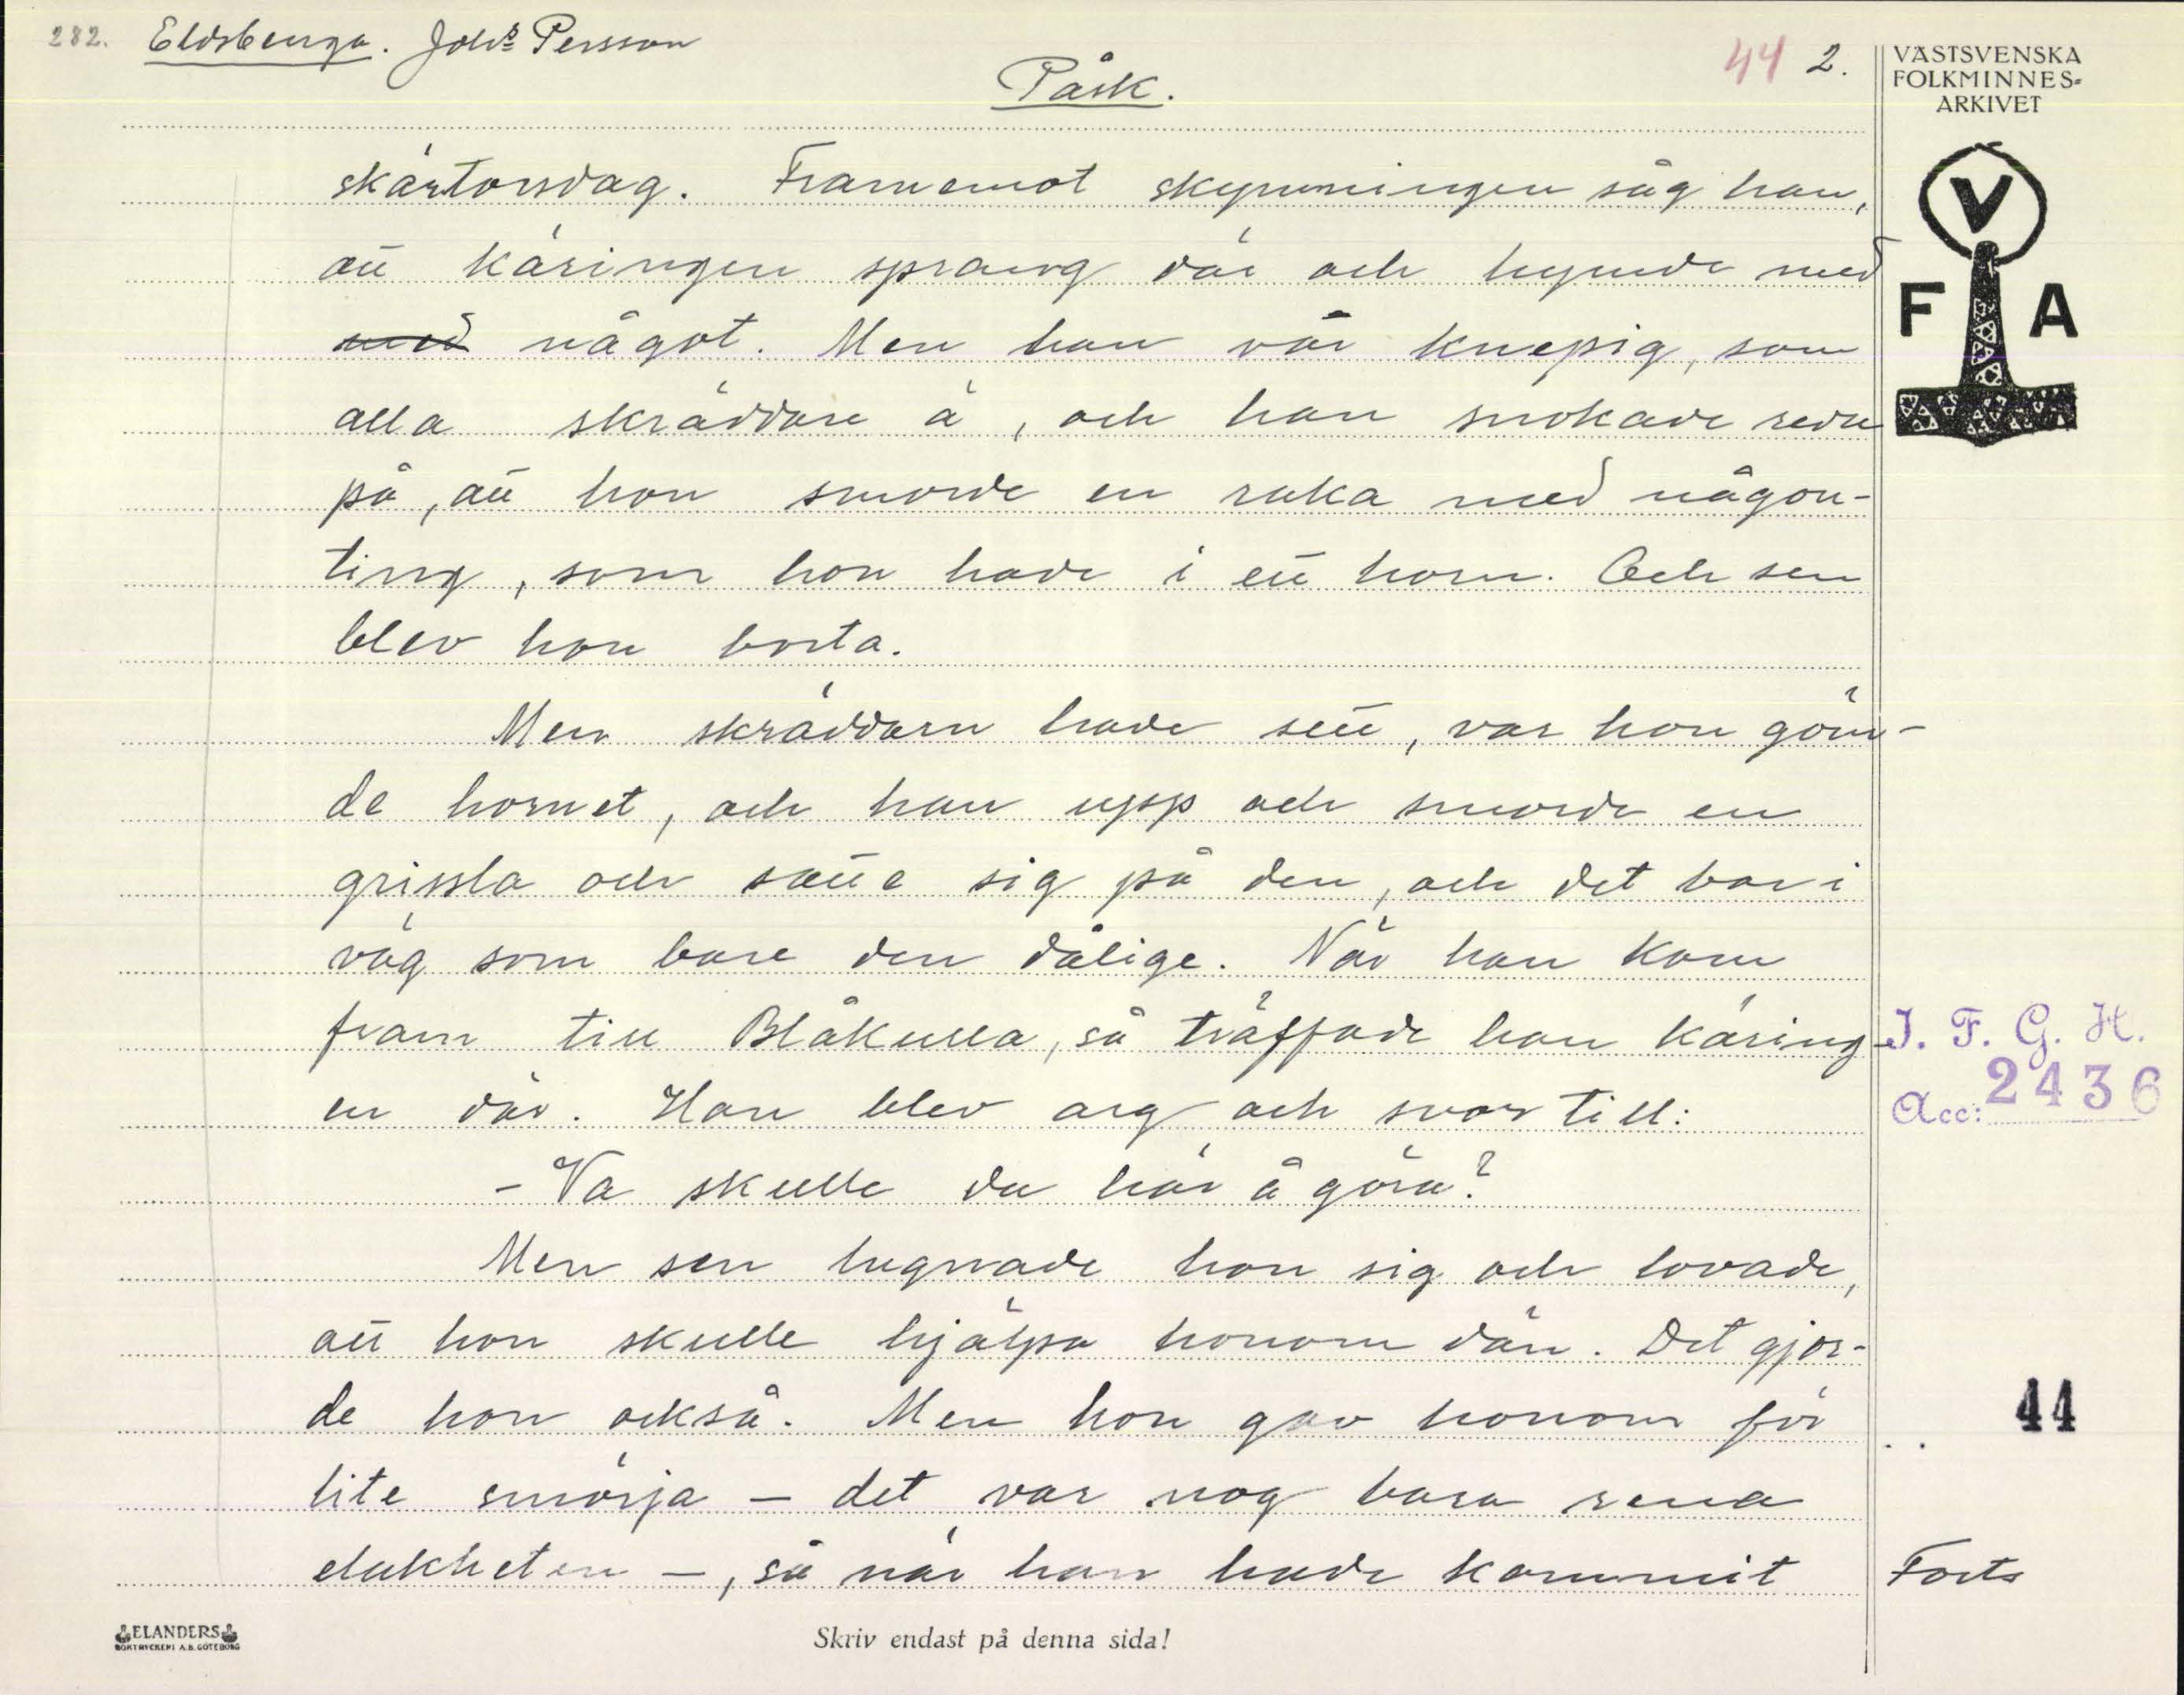 282. Eldsberga. Joh:s Persson
44 2.
Påsk.
VÄSTSVENSKA
FOLKMINNES-
ARKIVET
V
F A
skärtorsdag. Framemot skymningen såg han,
att käringen sprang där och hymde med
med något. Men han var knepig, som
alla skräddare ä, och han snokade reda
på, att hon smorde en raka med någon-
ting, som hon hade i ett horn. Och sen
blev hon borta.
Men skräddarn hade sett, var hon göm-
de hornet, och han upp och smorde en
grissla och satte sig på den, och det bar i
väg som bare den dålige. När han kom
fram till Blåkulla, så träffade han käring-
en där. Hon blev arg och svor till:
- Va skulle du här å göra?
Men sen lugnade hon sig och lovade,
att hon skulle hjälpa honom dän. Det gjor-
de hon också. Men hon gav honom för
lite smörja - det var nog bara rena
elakheten -, så när han hade kommit
I. F. G. H.
Acc: 2436
44
Forts
ELANDERS
BOKTRYCKERI A.B. GÖTEBORG
Skriv endast på denna sida!